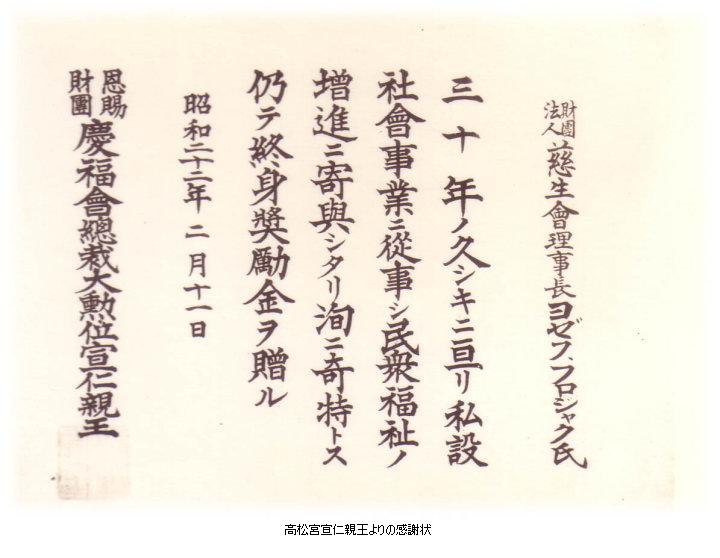 財團法人慈生會理事長ヨゼフ、フロジャク氏
三十年ノ久シキニ亘リ私設
社會事業ニ從事シ民衆福祉ノ
增進ニ寄與シタリ洵ニ奇特トス
仍テ終身奬勵金ヲ贈ル
昭和二十二年二月十一日
恩賜財團慶福會總裁大勲位宣仁親王
高松宮宣仁親王よりの感謝状